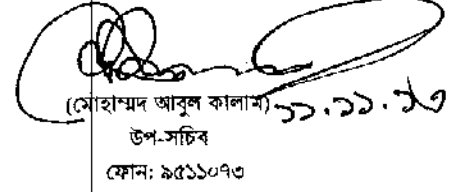 (মোহাম্মদ আবুল কালাম) ১১.১১.১৩
উপ-সচিব
ফোন: ৯৫১১০৭৩